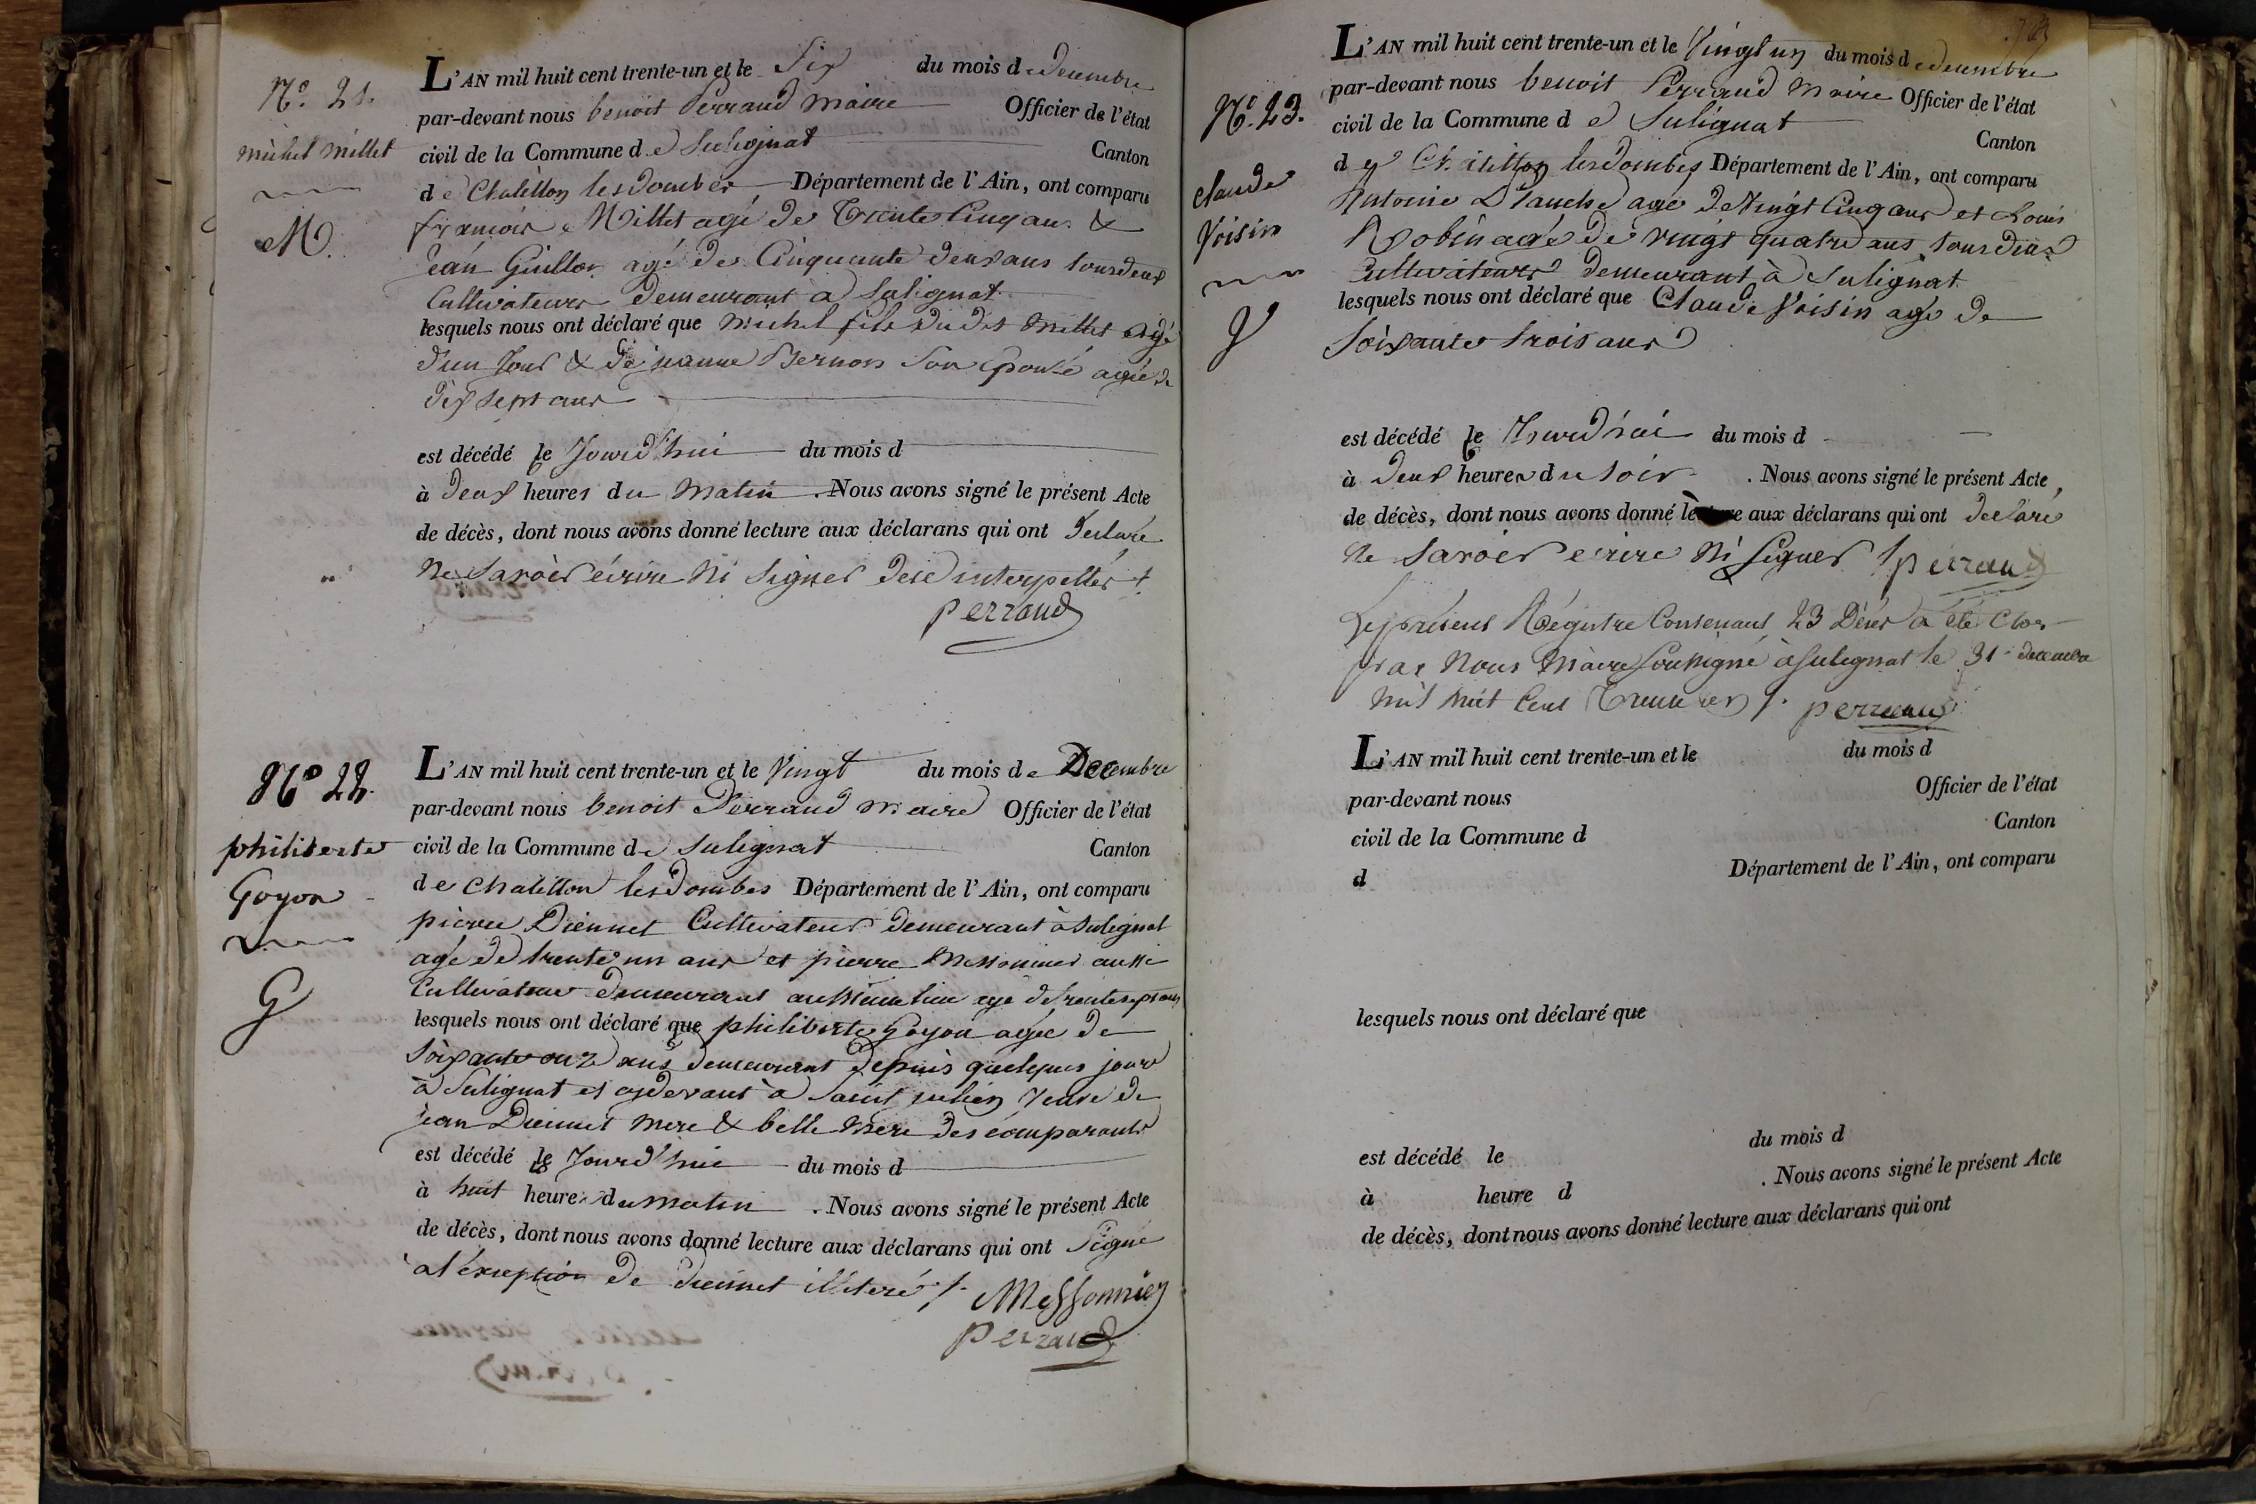 N.° 21.
michel millet
M.
L'AN mil huit cent trente-un et le Six du mois de decembre
par-devant nous benoit Perraud maire Officier de l'état
civil de la Commune de Sulignat Canton
de Chatillon les dombes Département de l'Ain, ont comparu
françois Millet agé de trente Cinq ans &
jean Guillon agé de Cinquante deux ans tous deux
Cultivateurs demeurant a Sulignat
lesquels nous ont déclaré que michel fils du dit millet agé
d'un Jour & de jeanne Bernon Son Epouse agée de
dix Sept ans
est décédé le Jourd'hui du mois d
à deux heures du matin . Nous avons signé le présent Acte
de décès, dont nous avons donné lecture aux déclarans qui ont declaré
Ne Savoir écrire Ni Signer de ce interpellés
perraud
N° 22.
philiberte
Goyon
G
L'AN mil huit cent trente-un et le Vingt du mois de Decembre
par-devant nous benoit Perraud maire Officier de l'état
civil de la Commune de Sulignat Canton
de chatillon les dombes Département de l'Ain, ont comparu
pierre Diennet Cultivateur demeurant à Sulignat
agé de trente un ans et pierre Messonnier aussi
Cultivateur demeurant au même lieu agé de trente sept ans
lesquels nous ont déclaré que philiberte Goyon agée de
Soixante onze ans demeurant depuis quelques jours
à Sulignat et cydevant à Saint julien Veuve de
jean Diennet mere & belle mere des comparants
est décédé le Jourd'hui du mois d
à huit heures du matin . Nous avons signé le présent Acte
de décès, dont nous avons donné lecture aux déclarans qui ont Signé
a l'éxception de diennet illiteré /.
Messonnier
perraud
N.° 23.
claude
Voisin
V
L'AN mil huit cent trente-un et le Vingt un du mois de decembre
par-devant nous benoit Perraud maire Officier de l'état
civil de la Commune de Sulignat Canton
de Chatillon les dombes Département de l'Ain, ont comparu
Antoine Blanche agé de Vingt Cinq ans et Louis
Robin agé de vingt quatre ans tous deux
Cultivateurs demeurant à Sulignat
lesquels nous ont déclaré que Claude Voisin agé de
Soixante trois ans
est décédé le Jourd'hui du mois d
à deux heures du Soir . Nous avons signé le présent Acte,
de décès, dont nous avons donné lecture aux déclarans qui ont declaré
Ne Savoir ecrire Ni Signer /. perraud
Le présent Régistre Contenant 23 Décés a été Clos
par Nous Maire Soussigné à Sulignat le 31 decembre
mil huit Cent Trente un /. perraud
L'AN mil huit cent trente-un et le du mois d
par-devant nous Officier de l'état
civil de la Commune d Canton
d Département de l'Ain, ont comparu
lesquels nous ont déclaré que
est décédé le du mois d
à heure d . Nous avons signé le présent Acte
de décès, dont nous avons donné lecture aux déclarans qui ont